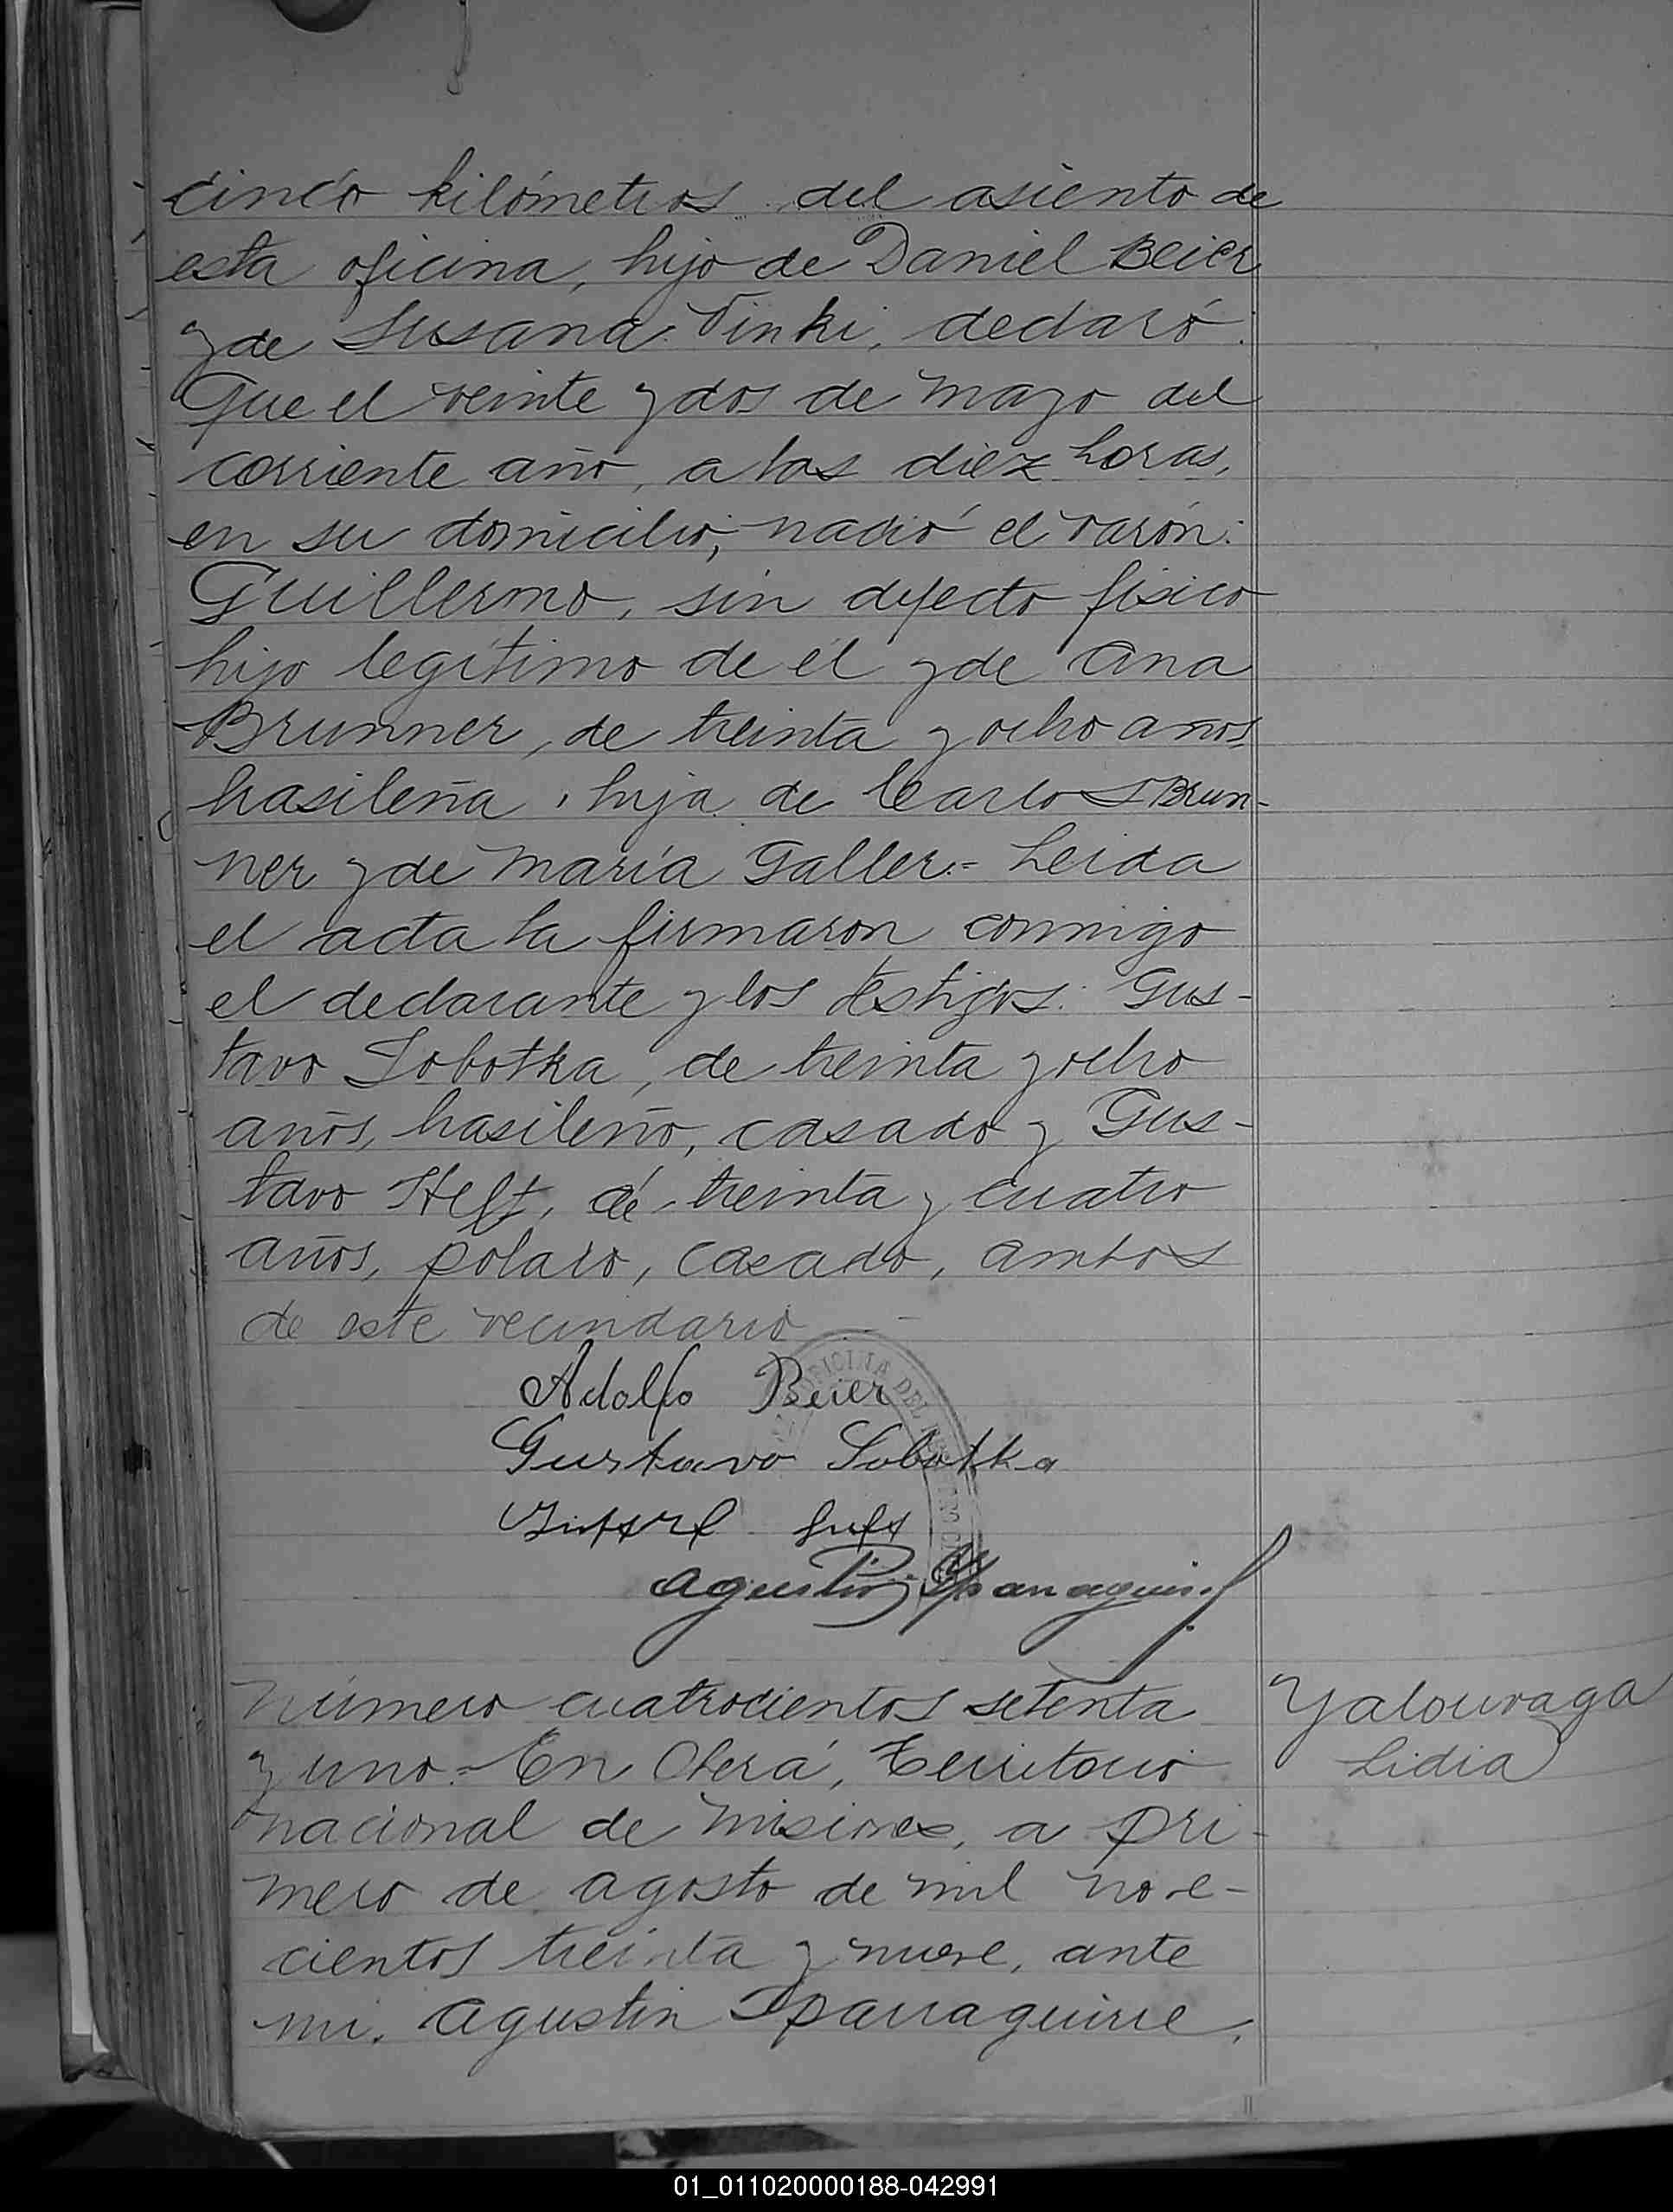 cinco kilómetros del asiento de
esta oficina, hijo de Daniel Beier
y de Susana Finki, declaró:
Que el veinte y dos de mayo del
corriente año, a las diez horas,
en su domicilio, nació el varón:
Guillermo, sin defecto físico
hijo legítimo de él y de Ana
Brunner, de treinta y ocho años
brasileña, hija de Carlos Brun-
ner y de María Galler.- Leida
el acta la firmaron conmigo
el declarante y los testigos: Gus-
tavo Sobotka, de treinta y ocho
años, brasileño, casado y Gus-
tavo Heft, de treinta y cuatro
años, polaco, casado, ambos
de este vecindario
Adolfo Beier
Gustavo Sobotka
Agustin Yparraguirre
OFICINA DEL
Número cuatrocientos setenta
y uno.- En Oberá, Territorio
nacional de Misiones, a pri-
mero de agosto de mil nove-
cientos treinta y nueve, ante
mi, Agustin Yparraguirre,
Yalouvaga
Lidia
01_011020000188-042991